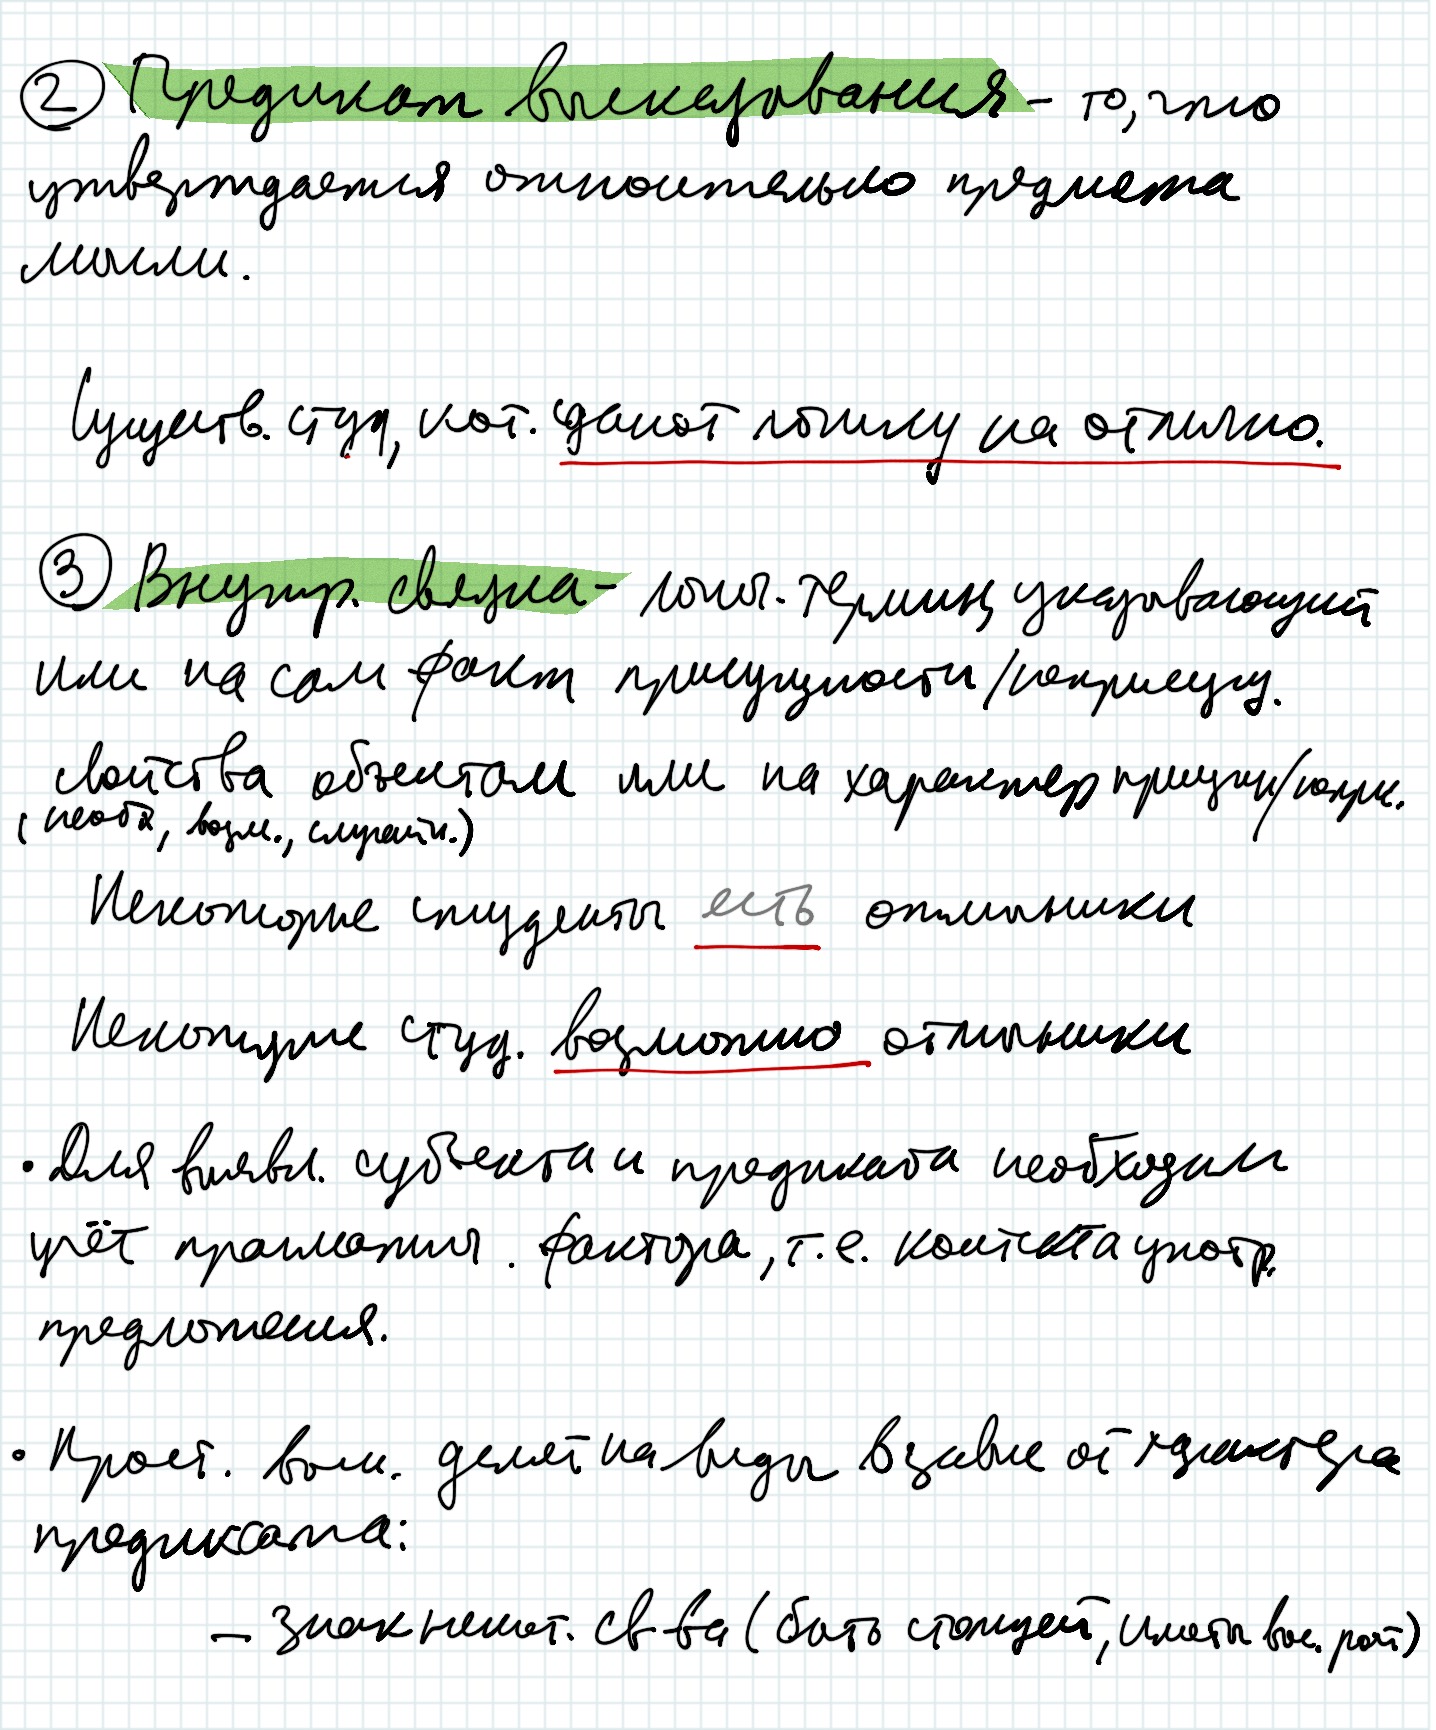 ② Предикат высказывания - то, что
утверждается относительно предмета
мысли.
Существ. студ, кот. сдают логику на отлично.
③ Внутр. связка - логич. термин, указывающий
или на сам факт присущности/неприсущ.
свойства объектам или на характер присущн/непр.
(необх, возм., случайн.)
Некоторые студенты есть отличники
Некоторые студ. возможно отличники
• Для выявл. субъекта и предиката необходим
учёт прагматич. фактора, т.е. контекста употр.
предложения.
• Прост. выск. делят на виды в завис от характера
предиката:
- знак некот. св-ва (быть столицей, иметь выс. рост)